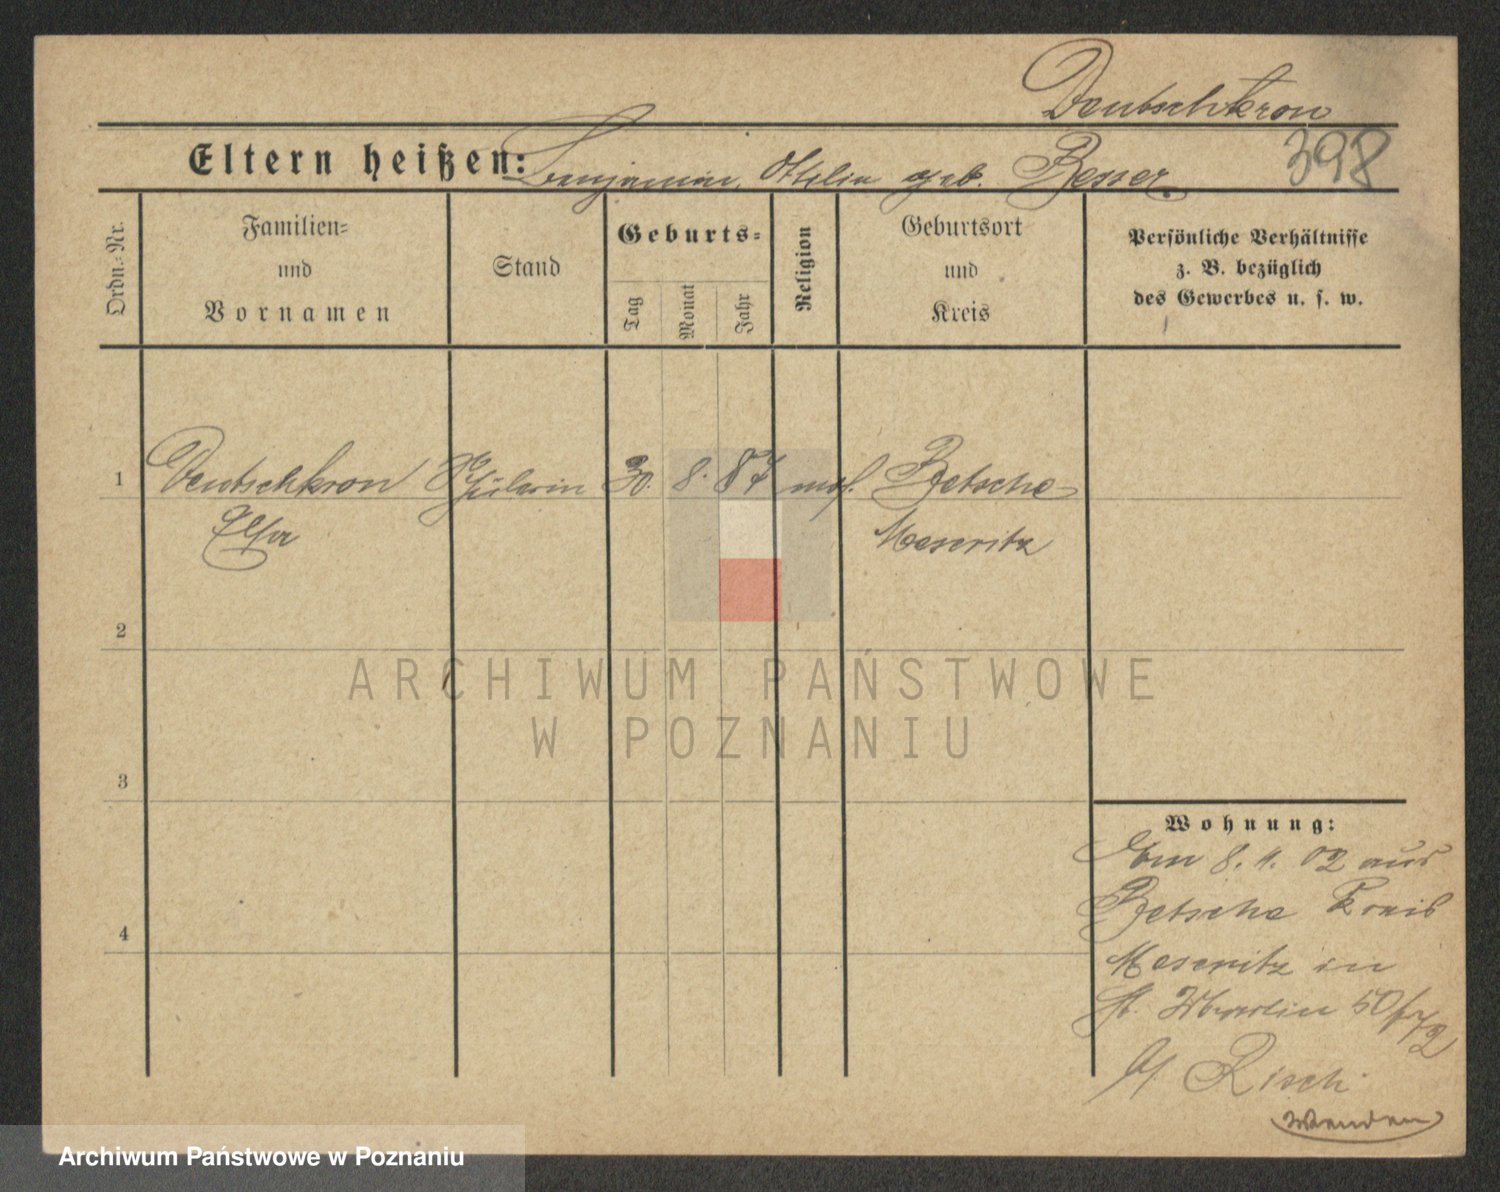 Deutschkron
Eltern heißen: Benjamin, Ottilie geb. Besser.
398
Ordn.-Nr.
Familien-
und
Vornamen
Stand
Geburts-
Tag
Monat
Jahr
Religion
Geburtsort
und
Kreis
Persönliche Verhältnisse
z. B. bezüglich
des Gewerbes u. s. w.
1 Deutschkron Schülerin 30. 8. 87 mos. Betsche
Elsa Meseritz
2
ARCHIWUM PAŃSTWOWE
W POZNANIU
3
Wohnung:
Am 8. 1. 02 aus
Betsche Kreis
4
Meseritz in
St. Martin 50/72
b/ Risch
Wenden
Archiwum Państwowe w Poznaniu